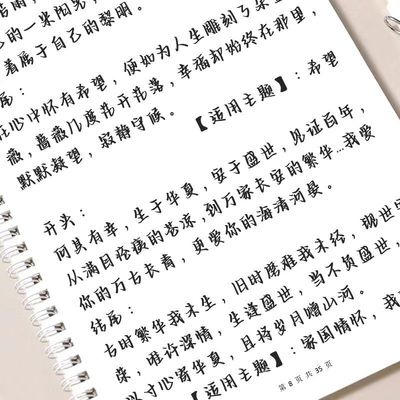 的一米阳光，
着属于自己的黎明。
尾：
在心中怀有希望，便如为人生雕刻了
薇，蔷薇几度花开花落，幸福却始终在那里，
默默凝望，寂静守候。 【适用主题】：希望
开头：
何其有幸，生于华夏，安于盛世，见证百年，
从满目疮痍的苍凉，到万家长安的繁华...我爱
你的万古长青，更爱你的海清河晏。
结尾：
古时繁华我未生，旧时磨难我未经，现世
荣，唯许深情，生逢盛世，当不负盛世，
以寸心寄华夏，且将岁月赠山河。
【适用主题】：家国情怀，我
第 8 页 共 35 页